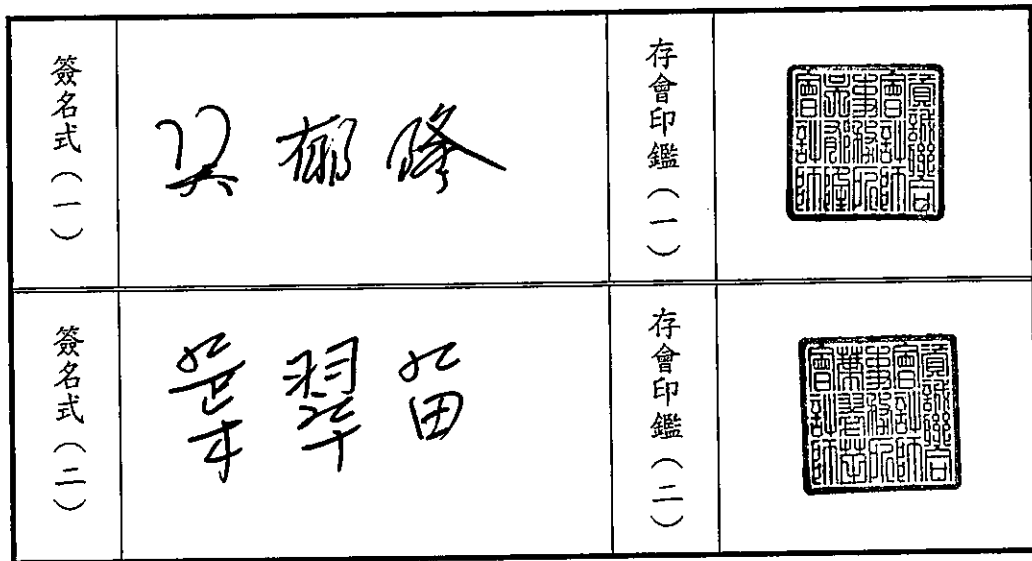 簽名式（一）
吳郁隆
存會印鑑（一）
資誠聯合
會計師
事務所
吳郁隆
會計師
簽名式（二）
葉翠苗
存會印鑑（二）
資誠聯合
會計師
事務所
葉翠苗
會計師